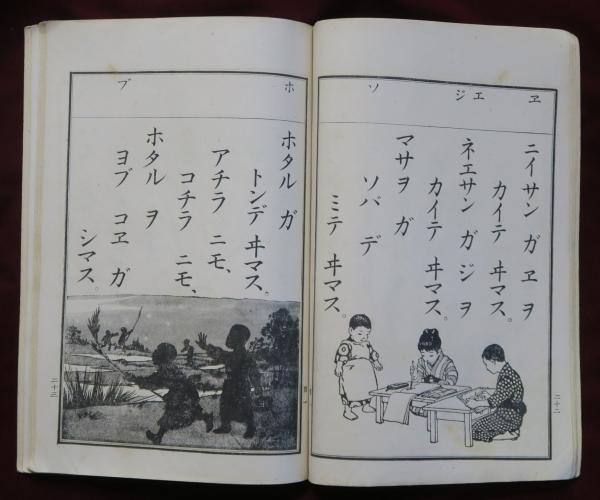 ヱ エ ジ ソ
ニイサン ガ ヱ ヲ
カイテ ヰマス。
ネエサン ガ ジ ヲ
カイテ ヰマス。
マサヲ ガ
ソバ デ
ミテ ヰマス。
二十二
ホ ブ
ホタル ガ
トンデ ヰマス。
アチラ ニモ、
コチラ ニモ、
ホタル ヲ
ヨブ コヱ ガ
シマス。
二十三